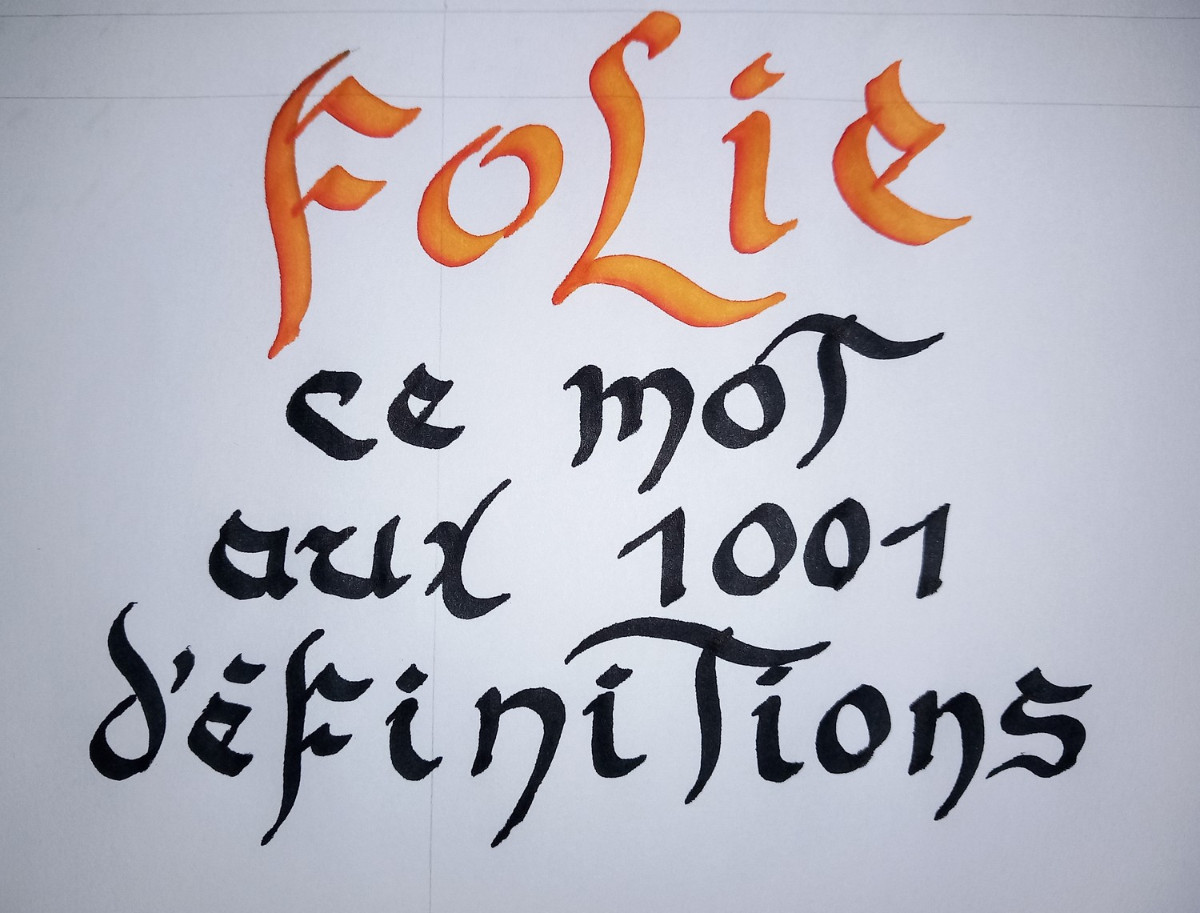 FOLIE
ce moT
aux 1001
d'éfiniTions